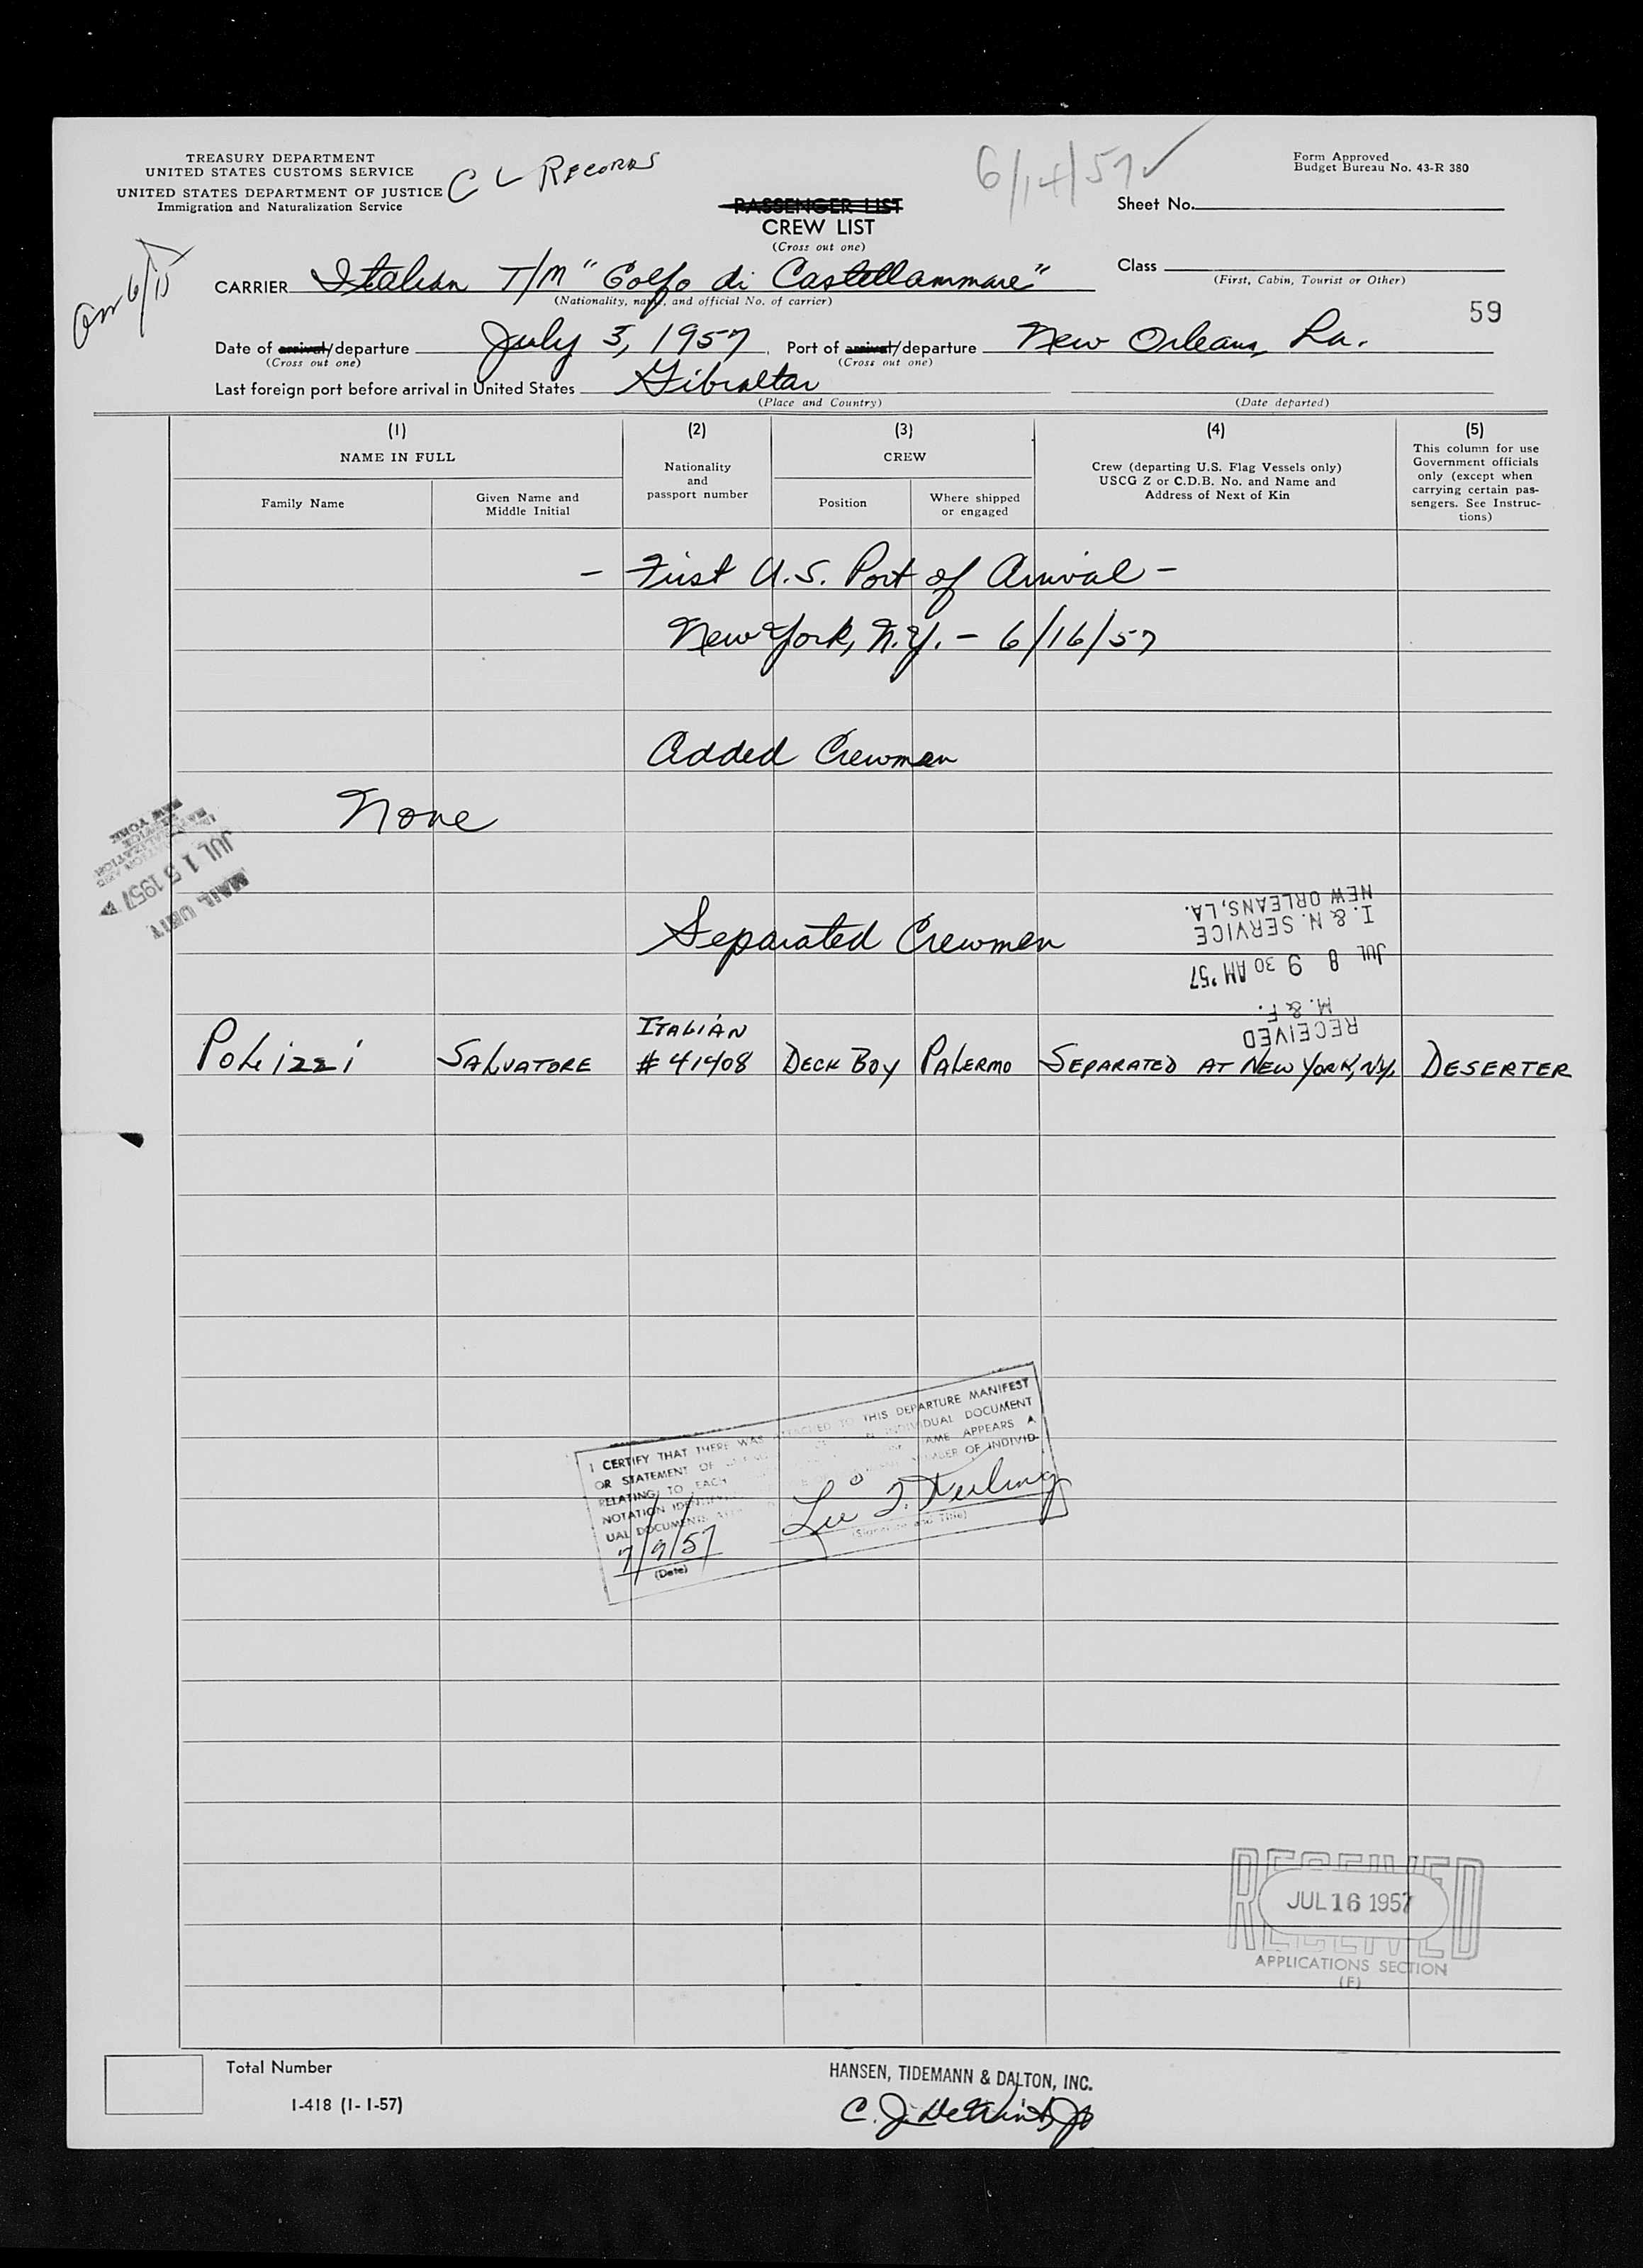 TREASURY DEPARTMENT
UNITED STATES CUSTOMS SERVICE
UNITED STATES DEPARTMENT OF JUSTICE
Immigration and Naturalization Service
C L RECORDS
6/14/57
Form Approved
Budget Bureau No. 43-R 380
PASSENGER LIST
CREW LIST
(Cross out one)
Sheet No.
6/15
CARRIER Italian T/M "Golfo di Castellammare"
(Nationality, name, and official No. of carrier)
Class
(First, Cabin, Tourist or Other)
59
Date of arrival/departure July 3, 1957, Port of arrival/departure New Orleans, La.
(Cross out one) (Cross out one)
Last foreign port before arrival in United States Gibraltar
(Place and Country) (Date departed)
(1) (2) (3) (4) (5)
NAME IN FULL
Family Name
Given Name and
Middle Initial
Nationality
and
passport number
CREW
Position
Where shipped
or engaged
Crew (departing U.S. Flag Vessels only)
USCG Z or C.D.B. No. and Name and
Address of Next of Kin
This column for use
Government officials
only (except when
carrying certain pas-
sengers. See Instruc-
tions)
- First U.S. Port of Arrival -
New York, N.Y. - 6/16/57
Added Crewmen
None
MAIL UNIT
JUL 15 1957
NEW YORK
Separated Crewmen
RECEIVED
M. & F.
JUL 8 9 30 AM '57
I. & N. SERVICE
NEW ORLEANS, LA.
ITALIAN
POLIZZI SALVATORE # 41408 DECK BOY PALERMO SEPARATED AT NEW YORK, NY. DESERTER
I CERTIFY THAT THERE WAS ATTACHED TO THIS DEPARTURE MANIFEST
OR STATEMENT OF INDIVIDUAL DOCUMENT
RELATING TO EACH NAME APPEARS A
NOTATION NUMBER OF INDIVID-
UAL DOCUMENTS
7/9/57
(Date)
(Signature and Title)
RECEIVED
JUL 16 1957
APPLICATIONS SECTION
(F)
Total Number
I-418 (1-1-57)
HANSEN, TIDEMANN & DALTON, INC.